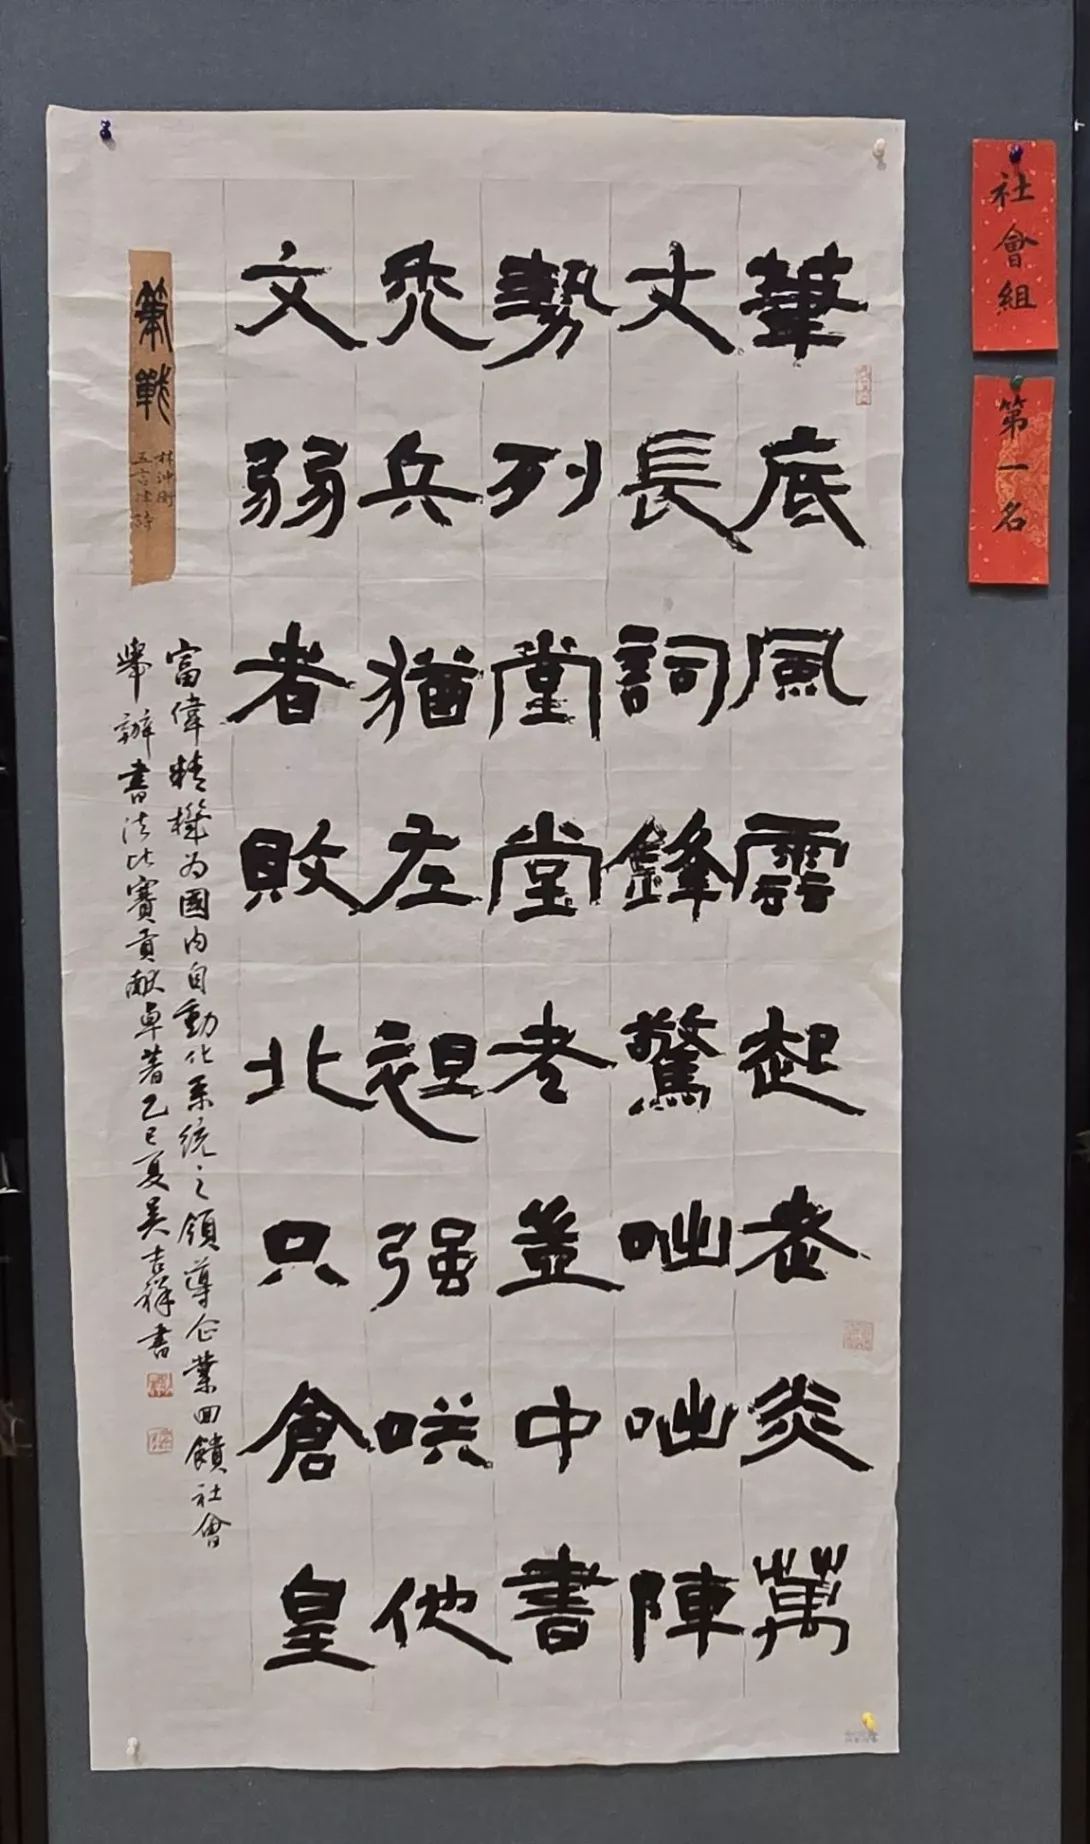 社會組
第一名
筆底風雲起光炎萬
丈長詞鋒驚咄咄陣
勢列堂堂老盡中書
禿兵猶左袒强咲他
文弱者敗北只倉皇
筆戰
林仲衡
五言律詩
富偉精機為國內自動化系統之領導企業回饋社會
舉辦書法比賽貢献卓著乙巳夏吳吉祥書